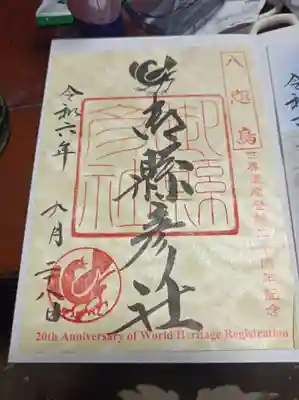 八咫烏
世界遺産登録二十周年記念
御縣彦社
御縣彦社
令和六年
九月二八日
20th Anniversary of World Heritage Registration